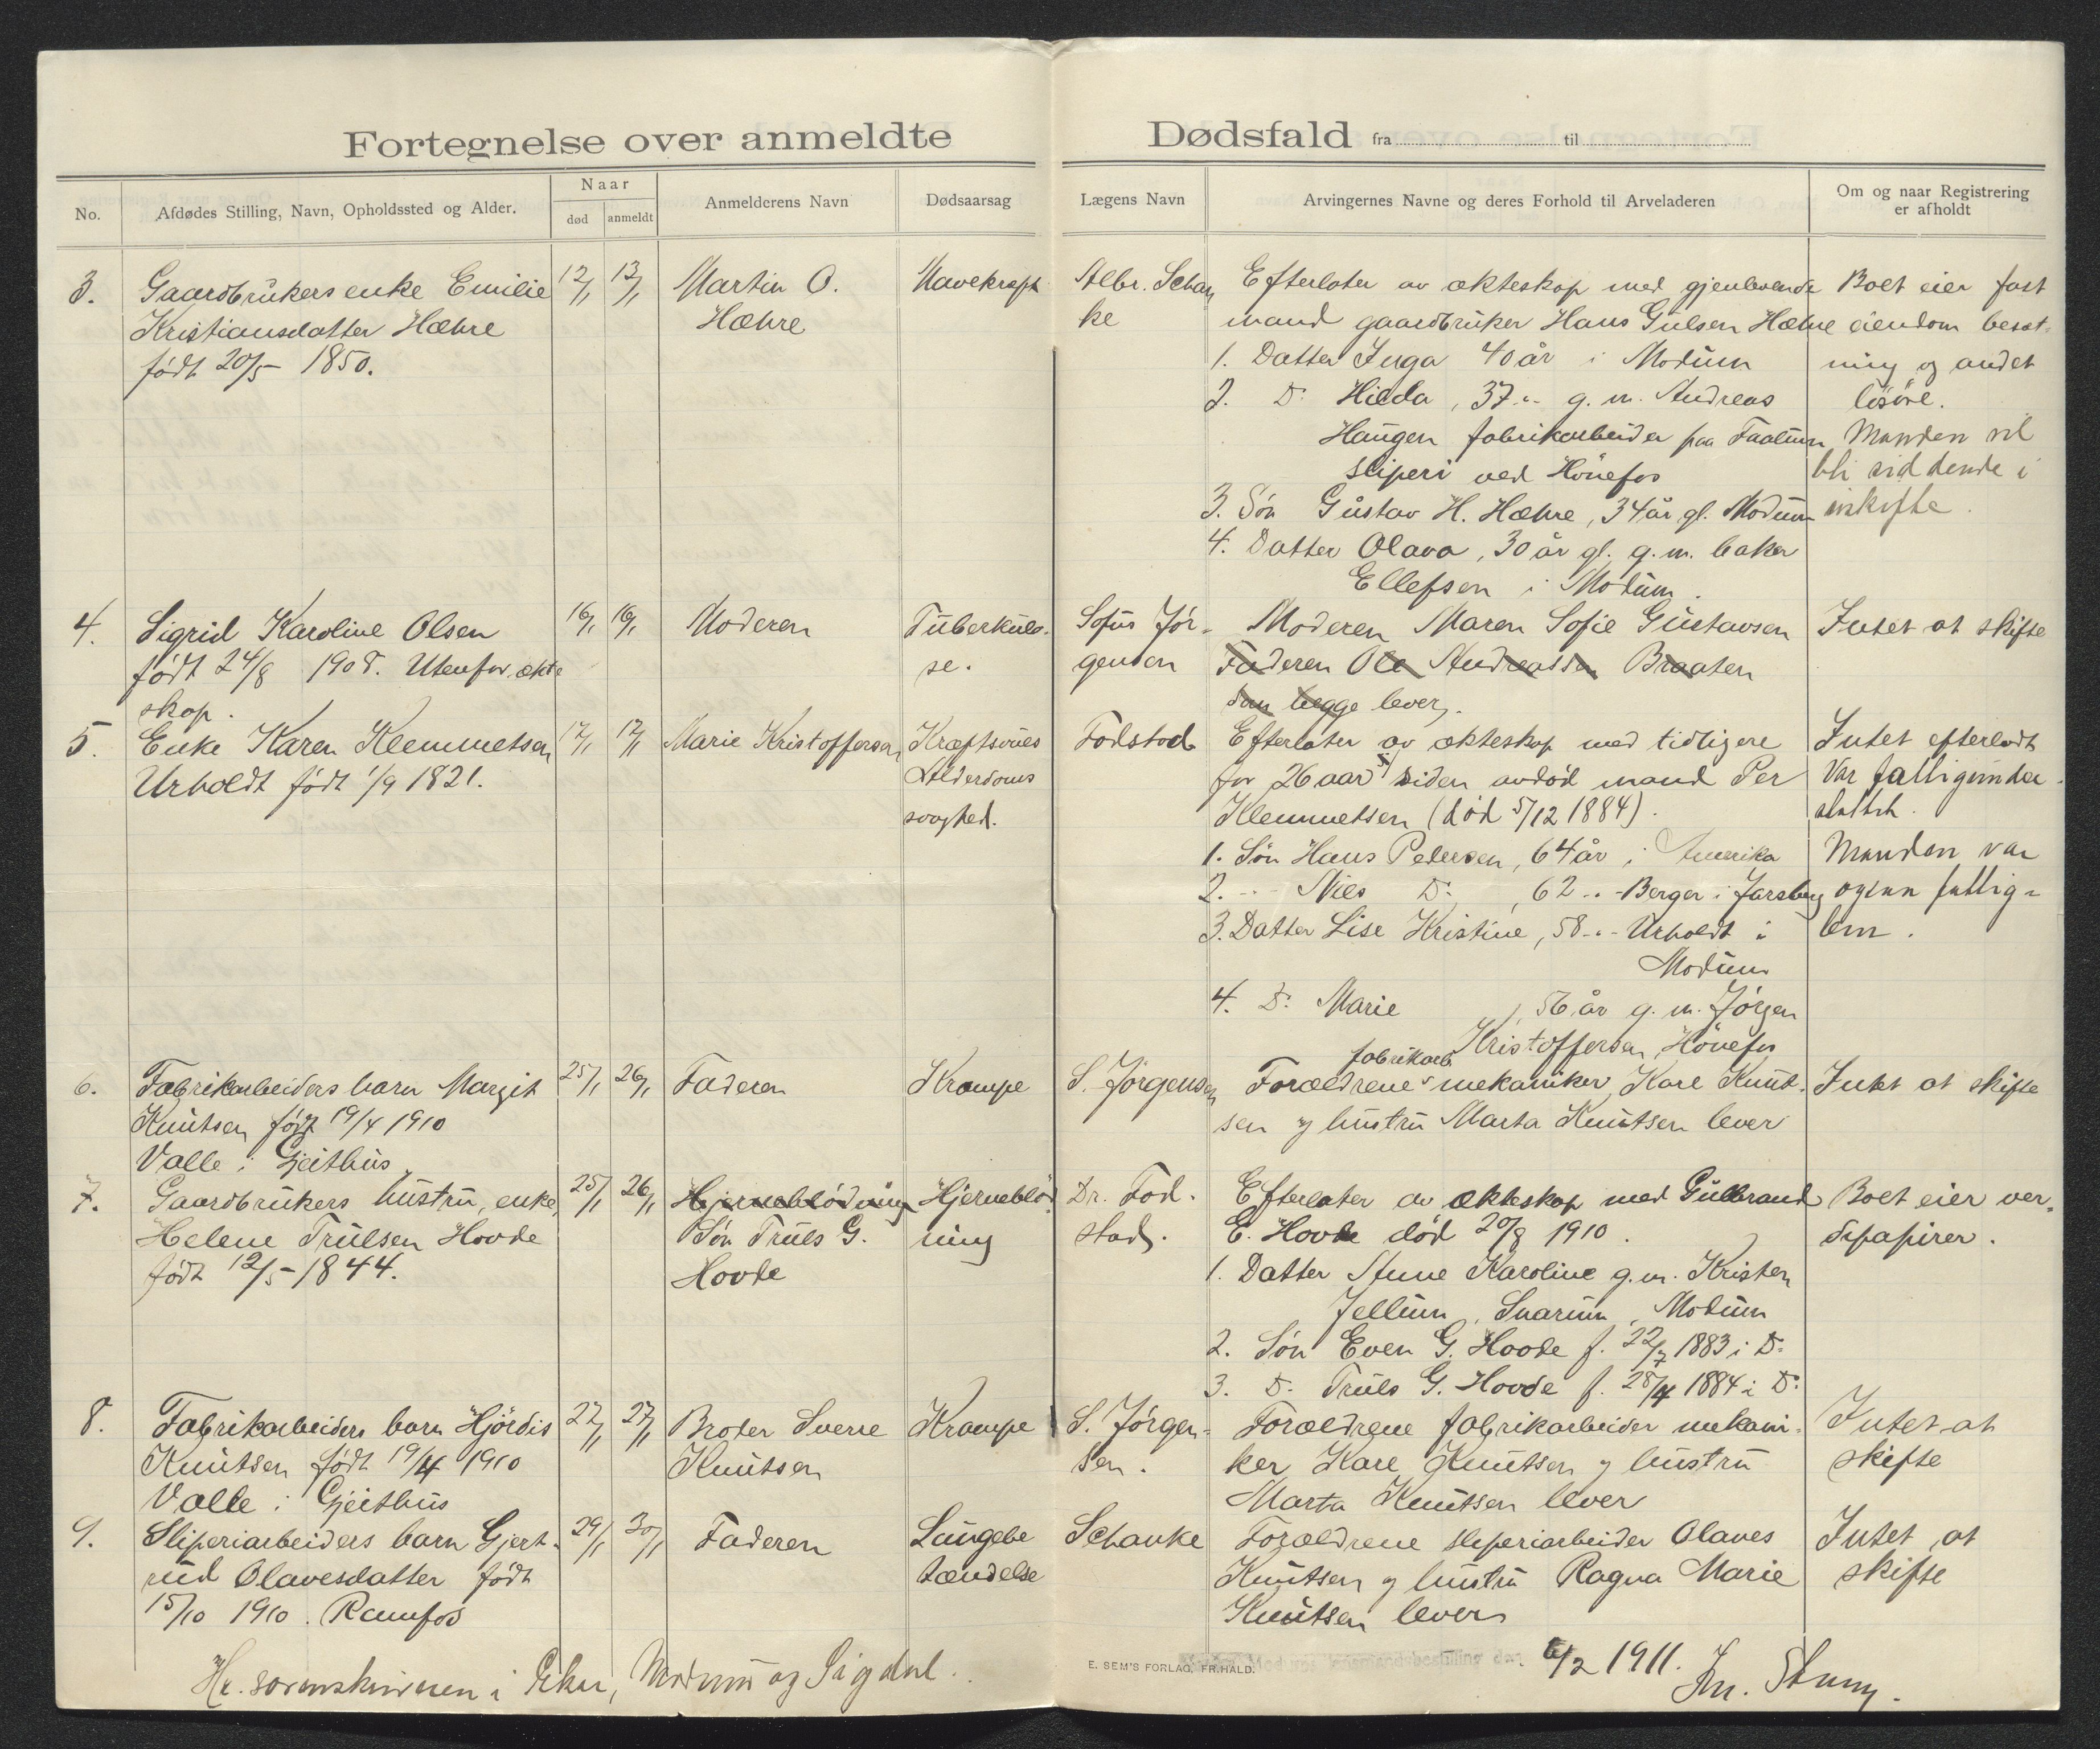 Fortegnelse over anmeldte Dødsfald fra til
No.
Afdødes Stilling, Navn, Opholdssted og Alder.
Naar
død
anmeldt
Anmelderens Navn
Dødsaarsag
Lægens Navn
Arvingernes Navne og deres Forhold til Arveladeren
Om og naar Registrering
er afholdt
3.
Gaardbrukers enke Emilie
Kristiansdatter Hæhre
født 20/5 1850.
12/1
13/1
Martin O.
Hæhre
Mavekræft
Albr. Schan
ke
Efterlater av ækteskap med gjenlevende
mand gaardbruker Hans Gulsen Hæhre
1. Datter Inga 40 år i Modum
2. Do Hilda, 37 " g. m. Andreas
Haugen fabrikarbeider paa
sliperi ved Hönefos
3. Søn Gustav H. Hæhre, 34 år gl. Modum
4. Datter Olava, 30 år gl. g. m. baker
Ellefsen i Modum.
Boet eier fast
eiendom besæt-
ning og andet
løsøre.
Manden vil
bli siddende i
uskifte.
4.
Sigrid Karoline Olsen
født 24/8 1908. Utenfor ækte
skap.
16/1
16/1
Moderen
Tuberkulo-
se.
Sofus Jör-
gensen
Moderen Maren Sofie Gustavsen
Faderen Ole Andreassen Braaten
som begge lever.
Intet at skifte
5.
Enke Karen Klemmetsen
Urholdt født 1/9 1821.
17/1
17/1
Marie Kristoffersen
Kræftsvúes
Alderdoms
svaghed.
Fodstad
Efterlater av ækteskap med tidligere
for 26 aar siden avdød mand Per
Klemmetsen (død 5/12 1884).
1. Søn Hans Pedersen, 64 år i Amerika
2. " Nils Do, 62 " Berger i Jarsberg
3. Datter Lise Kristine, 58 " Urholdt i
Modum
4. Do Marie, 56 år g. m. Jörgen
Kristoffersen, Hönefos
Intet efterladt
Var fattigunder-
støttet.
Manden var
ogsaa fattig-
lem.
6.
Fabrikarbeiders barn Margit
Knutsen født 19/4 1910
Valle i Gjeithus
25/1
26/1
Faderen
Krampe
S. Jørgensen
fabrikarb.
Forældrene mekaniker Kare Knut-
sen og hustru Marta Knutsen lever
Intet at skifte
7.
Gaardbrukers hustru, enke,
Helene Trulsen Hovde
født 12/5 1844.
25/1
26/1
Hjerneblødning
Søn Truls G.
Hovde
Hjerneblød-
ning
Dr. Fod-
stad.
Efterlater av ækteskap med Gulbrand
E. Hovde død 20/8 1910.
1. Datter Anne Karoline g. m. Kristen
Jellum, Snarum, Modum
2. Søn Even G. Hovde f. 22/7 1883 i Do
3. Do Truls G. Hovde f. 28/4 1884 i Do
Boet eier ver-
dipapirer.
8.
Fabrikarbeiders barn Hjördis
Knutsen født 19/4 1910
Valle i Gjeithus
27/1
27/1
Broder Sverre
Knutsen
Krampe
S. Jørgen-
sen.
Forældrene fabrikarbeider mekani-
ker Kare Knutsen og hustru
Marta Knutsen lever
Intet at
skifte
9.
Sliperiarbeiders barn Gjert-
rud Olavesdatter født
15/10 1910. Ramfos
29/1
30/1
Faderen
Lungebe
tændelse
Schanke
Forældrene sliperiarbeider Olaves
Knutsen og hustru Ragna Marie
Knutsen lever
Intet at
skifte
Hr. sorenskriveren i Eker, Modum og Sigdal.
E. SEM'S FORLAG, FR.HALD.
6/2 1911.